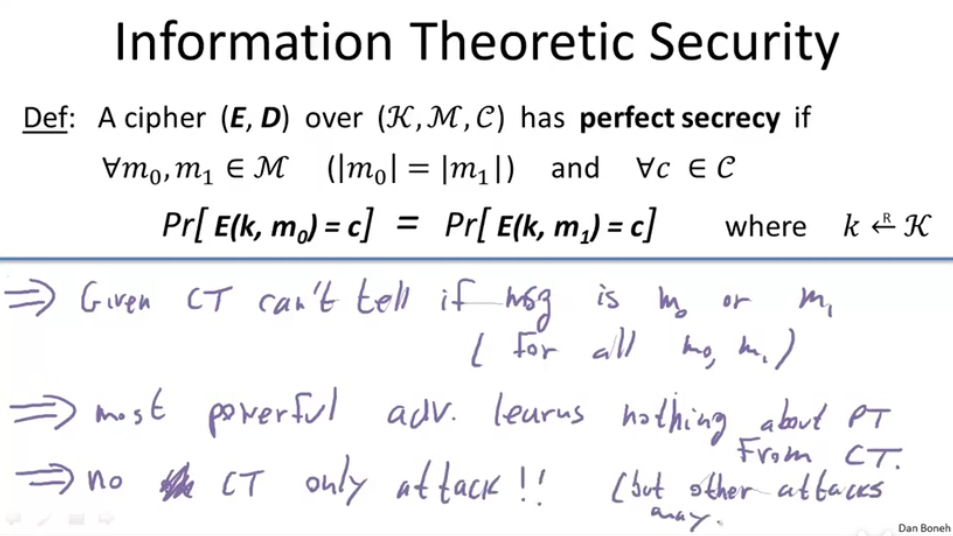 Information Theoretic Security
Def: A cipher (E, D) over (𝒦, ℳ, 𝒞) has perfect secrecy if
∀m₀, m₁ ∈ ℳ (|m₀| = |m₁|) and ∀c ∈ 𝒞
Pr[ E(k, m₀) = c] = Pr[ E(k, m₁) = c] where k ←ᴿ 𝒦
⇒ Given CT can't tell if msg is m₀ or m₁
( for all m₀, m₁ )
⇒ most powerful adv. learns nothing about PT
from CT.
⇒ no CT only attack !! (but other attacks
may.
Dan Boneh